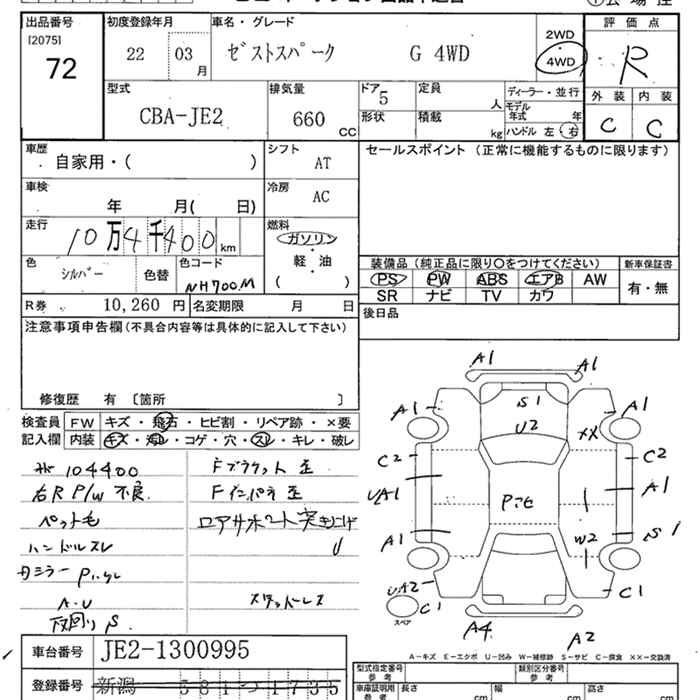 出品番号
初度登録年月
車名・グレード
評価点
[2075]
72
22 03 月
ゼストスパーク G 4WD
2WD
4WD
R
外装 内装
C C
型式
CBA-JE2
排気量
660 CC
ドア 5
定員 人
形状
積載 kg
ディーラー・並行
モデル年式 年
ハンドル 左・右
車歴
自家用・( )
シフト
AT
セールスポイント (正常に機能するものに限ります)
車検
年 月( 日)
冷房
AC
走行
10万4千400 km
燃料
ガソリン
軽・油
( )
色
シルバー
色替
色コード
NH700M
装備品 (純正品に限り○をつけてください)
新車保証書
PS PW ABS エアB AW
SR ナビ TV カワ
有・無
R券 10,260 円
名変期限 月 日
後日品
注意事項申告欄(不具合内容等は具体的に記入して下さい)
修復歴 有 〔箇所 〕
検査員記入欄
FW キズ・飛石・ヒビ割・リペア跡・×要
内装 キズ・汚れ・コゲ・穴・スレ・キレ・破レ
104400
右R P/W 不良
ペット毛
ハンドルスレ
A-U
下回りS
Fブラケット歪
Fインパネ歪
ロアサポート突き上げU
スタッドレス
A1
A1
S1
U2
A1
A1
XX
C2
C2
UA1
A1
A1
S1
W2
UA2
C1
C1
スペア
A4
A2
A-キズ E-エクボ U-凹み W-補修跡 S-サビ C-腐食 XX-交換済
車台番号 JE2-1300995
登録番号 新潟 581 つ 1735
型式指定番号 参考
類別区分番号 参考
車庫証明用 参考
長さ cm
幅 cm
高さ cm